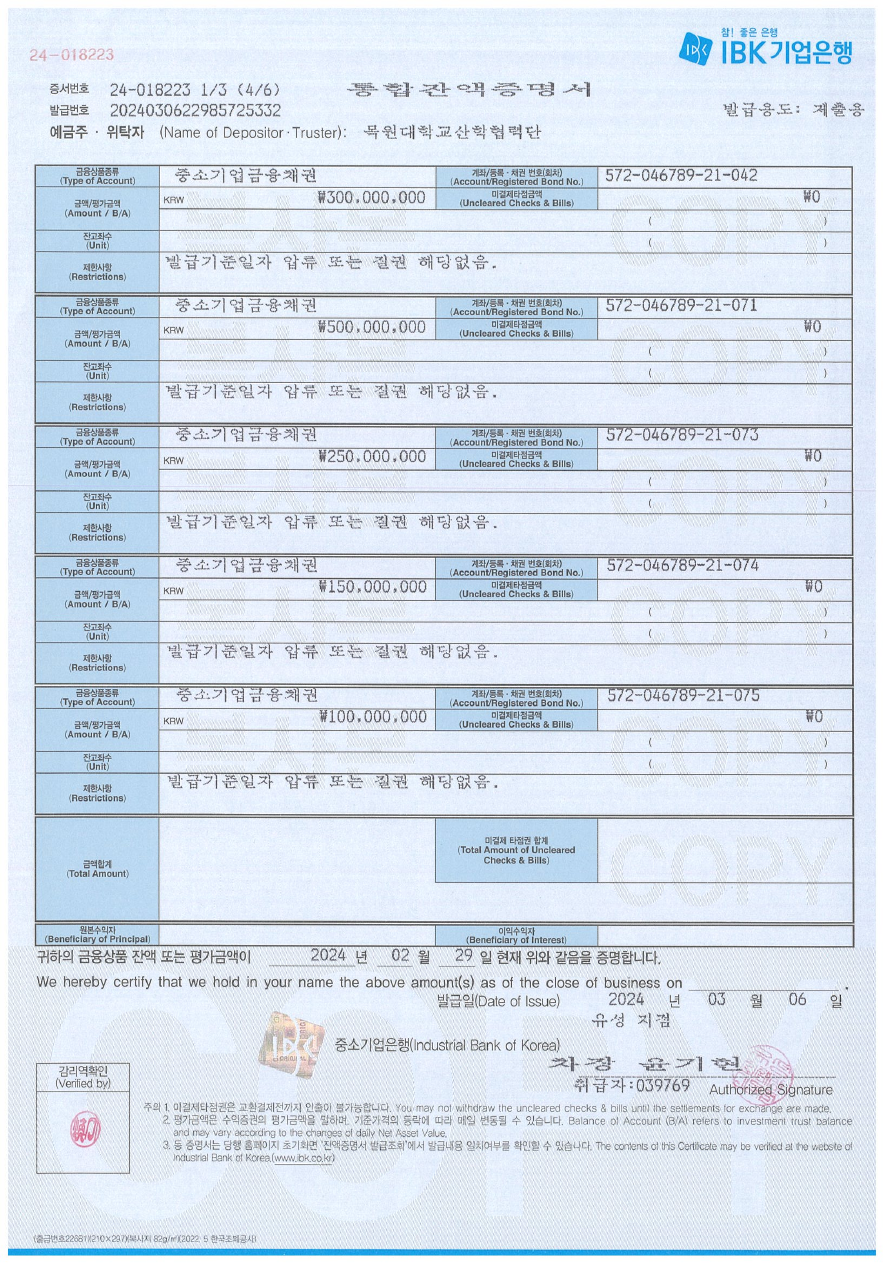 24-018223
참! 좋은 은행
IBK기업은행
증서번호 24-018223 1/3 (4/6)
통합잔액증명서
발급번호 2024030622985725332
발급용도: 제출용
예금주 · 위탁자 (Name of Depositor · Truster): 목원대학교산학협력단
금융상품종류 (Type of Account) 중소기업금융채권 계좌/등록 · 채권 번호(회차) (Account/Registered Bond No.) 572-046789-21-042
금액/평가금액 (Amount / B/A) KRW ₩300,000,000 미결제타점금액 (Uncleared Checks & Bills) ₩0
( )
잔고좌수 (Unit) ( )
제한사항 (Restrictions) 발급기준일자 압류 또는 질권 해당없음.
금융상품종류 (Type of Account) 중소기업금융채권 계좌/등록 · 채권 번호(회차) (Account/Registered Bond No.) 572-046789-21-071
금액/평가금액 (Amount / B/A) KRW ₩500,000,000 미결제타점금액 (Uncleared Checks & Bills) ₩0
( )
잔고좌수 (Unit) ( )
제한사항 (Restrictions) 발급기준일자 압류 또는 질권 해당없음.
금융상품종류 (Type of Account) 중소기업금융채권 계좌/등록 · 채권 번호(회차) (Account/Registered Bond No.) 572-046789-21-073
금액/평가금액 (Amount / B/A) KRW ₩250,000,000 미결제타점금액 (Uncleared Checks & Bills) ₩0
( )
잔고좌수 (Unit) ( )
제한사항 (Restrictions) 발급기준일자 압류 또는 질권 해당없음.
금융상품종류 (Type of Account) 중소기업금융채권 계좌/등록 · 채권 번호(회차) (Account/Registered Bond No.) 572-046789-21-074
금액/평가금액 (Amount / B/A) KRW ₩150,000,000 미결제타점금액 (Uncleared Checks & Bills) ₩0
( )
잔고좌수 (Unit) ( )
제한사항 (Restrictions) 발급기준일자 압류 또는 질권 해당없음.
금융상품종류 (Type of Account) 중소기업금융채권 계좌/등록 · 채권 번호(회차) (Account/Registered Bond No.) 572-046789-21-075
금액/평가금액 (Amount / B/A) KRW ₩100,000,000 미결제타점금액 (Uncleared Checks & Bills) ₩0
( )
잔고좌수 (Unit) ( )
제한사항 (Restrictions) 발급기준일자 압류 또는 질권 해당없음.
금액합계 (Total Amount) 미결제 타점권 합계 (Total Amount of Uncleared Checks & Bills)
COPY
원본수익자 (Beneficiary of Principal) 이익수익자 (Beneficiary of Interest)
귀하의 금융상품 잔액 또는 평가금액이 2024 년 02 월 29 일 현재 위와 같음을 증명합니다.
We hereby certify that we hold in your name the above amount(s) as of the close of business on .
발급일(Date of Issue) 2024 년 03 월 06 일
유성 지점
중소기업은행(Industrial Bank of Korea)
차장 윤기현
취급자:039769 Authorized Signature
감리역확인
(Verified by)
주의 1. 미결제타점권은 교환결제전까지 인출이 불가능합니다. You may not withdraw the uncleared checks & bills until the settlements for exchange are made.
2. 평가금액은 수익증권의 평가금액을 말하며, 기준가격의 등락에 따라 매일 변동될 수 있습니다. Balance of Account (B/A) refers to investment trust balance
and may vary according to the changes of daily Net Asset Value.
3. 동 증명서는 당행 홈페이지 초기화면 '잔액증명서 발급조회'에서 발급내용 일치여부를 확인할 수 있습니다. The contents of this Certificate may be verified at the website of
Industrial Bank of Korea.(www.ibk.co.kr)
COPY
(출급번호22681)(210×297)(복사지 82g/㎡)(2022. 5 한국조폐공사)